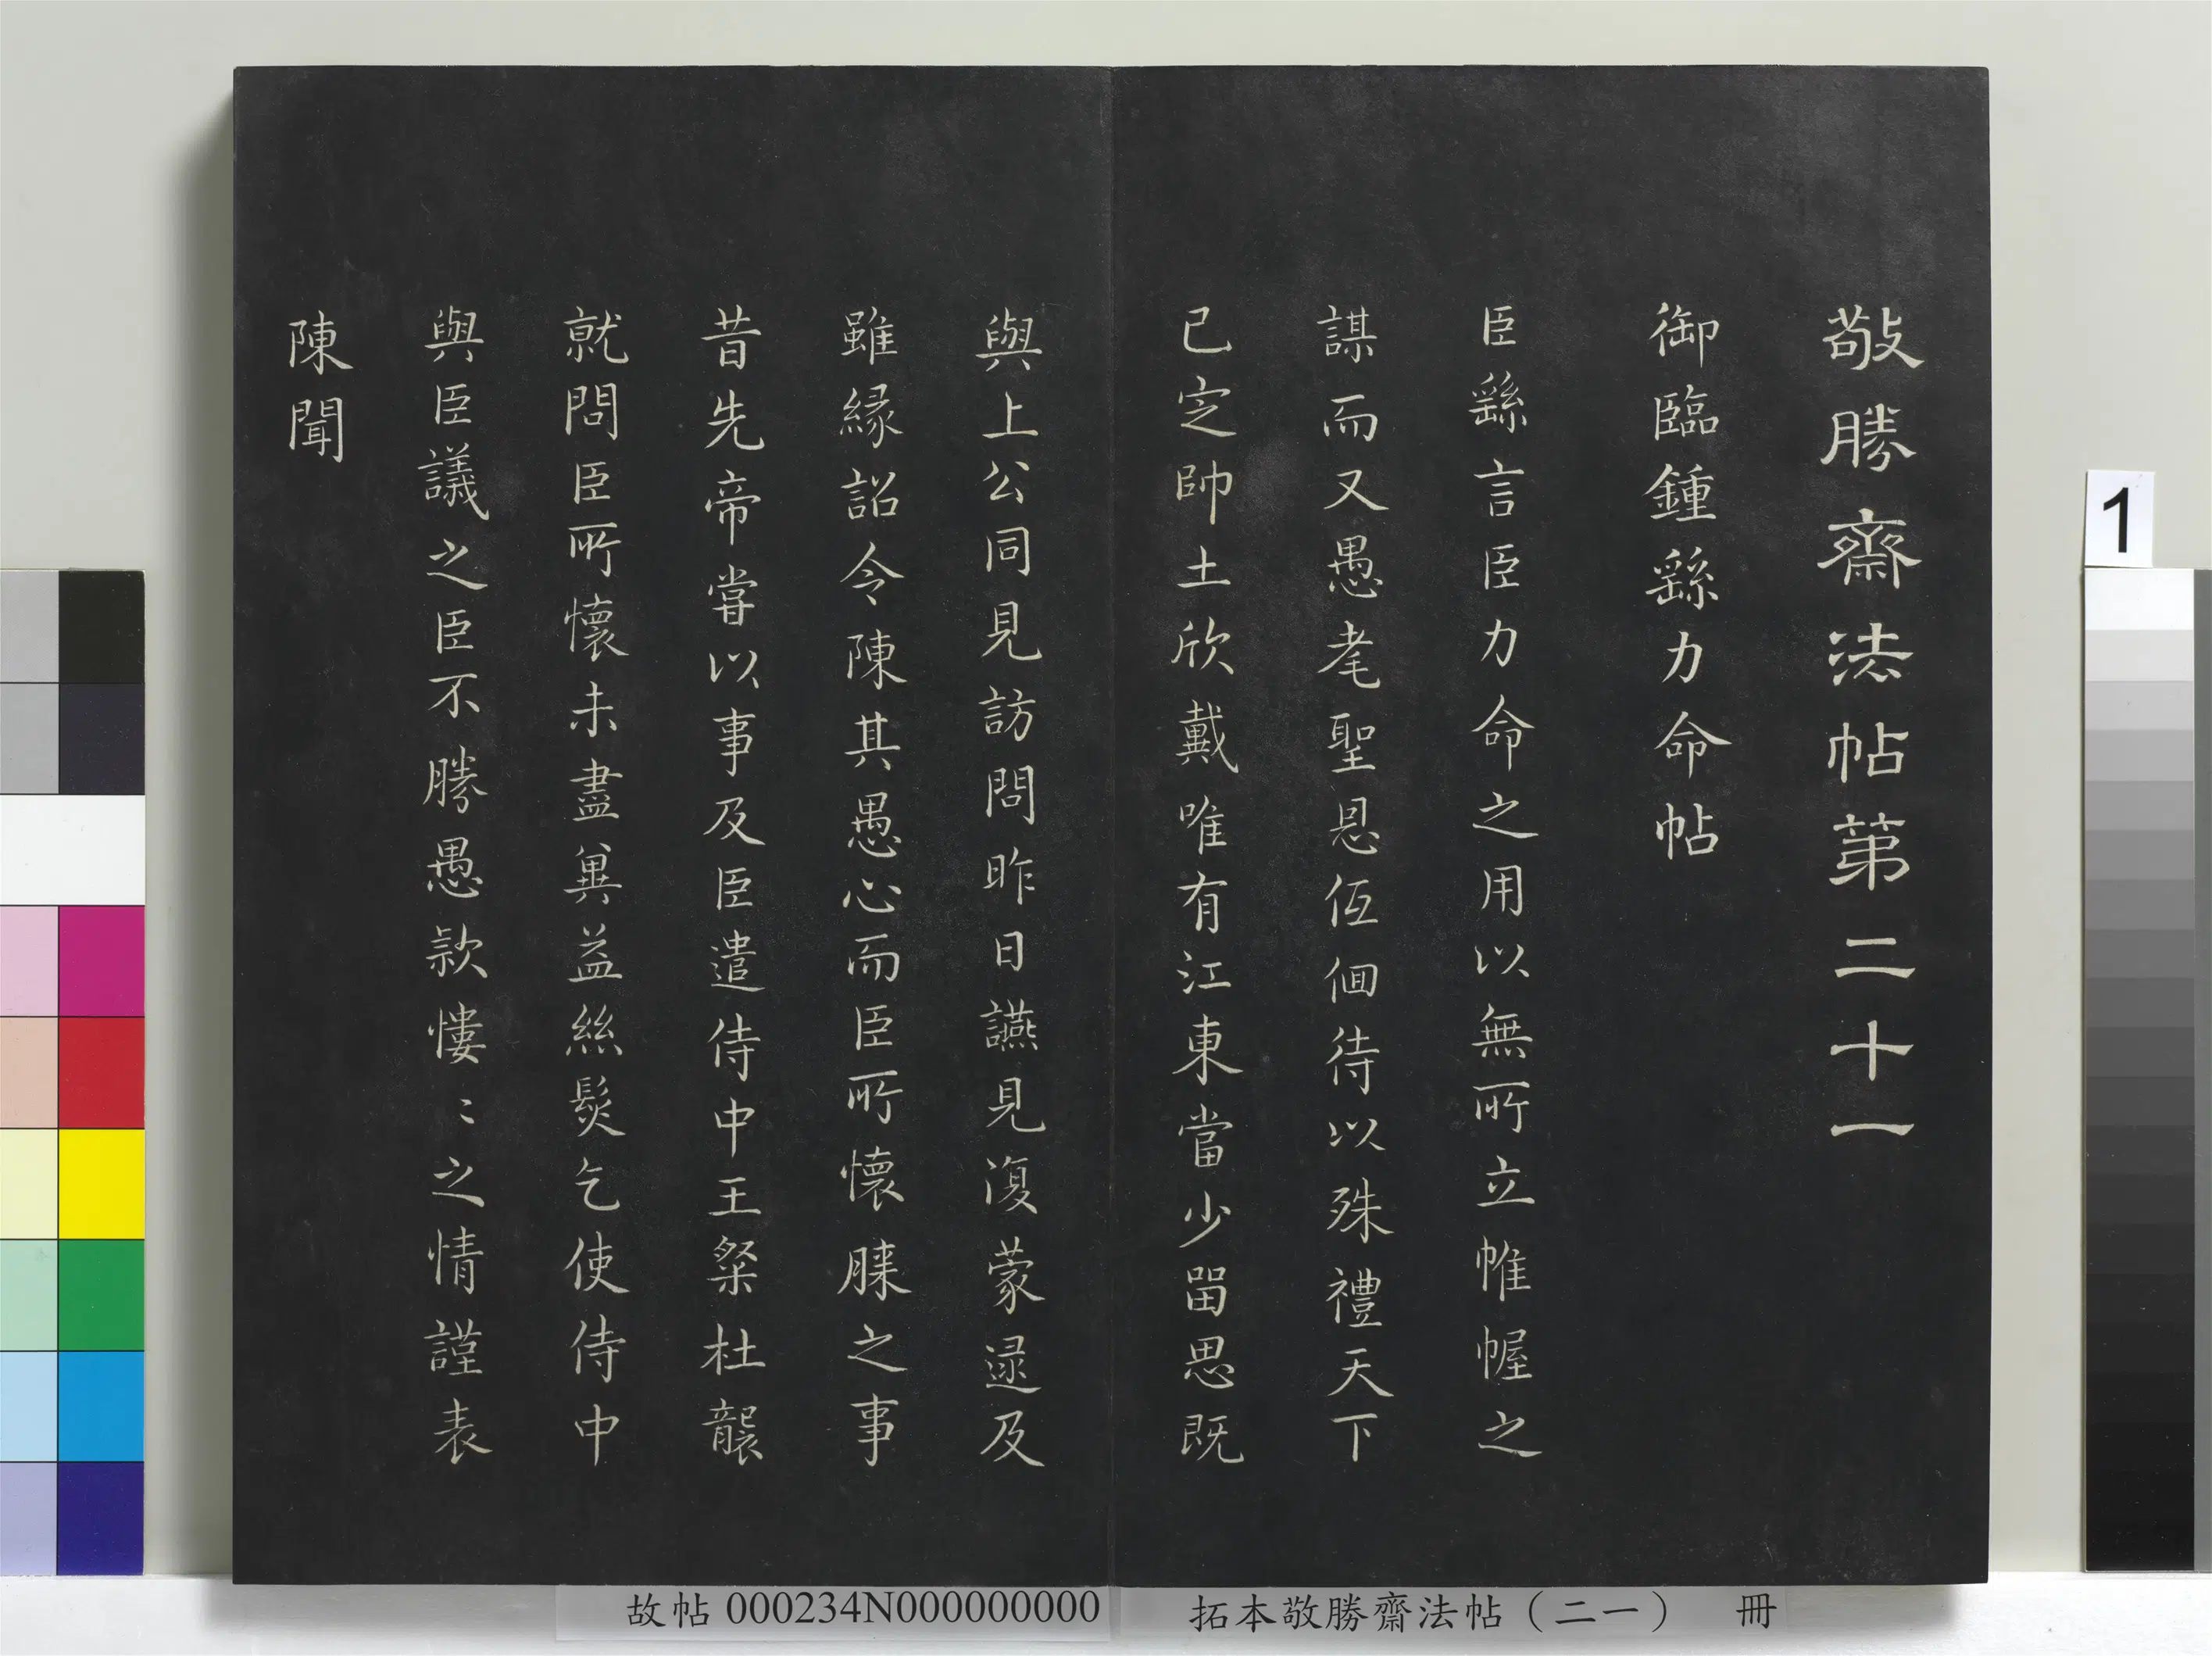 敬勝齋法帖第二十一
御臨鍾繇力命帖
臣繇言臣力命之用以無所立帷幄之
謀而又愚耄聖恩低佪待以殊禮天下
已定帥土欣戴唯有江東當少留思既
與上公同見訪問昨日讌見復蒙逮及
雖緣詔令陳其愚心而臣所懷未之事
昔先帝嘗以事及臣遣侍中王粲杜襲
就問臣所懷未盡冀益絲髮乞使侍中
與臣議之臣不勝愚款悽〻之情謹表
陳聞
1
故帖 000234N000000000
拓本敬勝齋法帖（二一） 冊